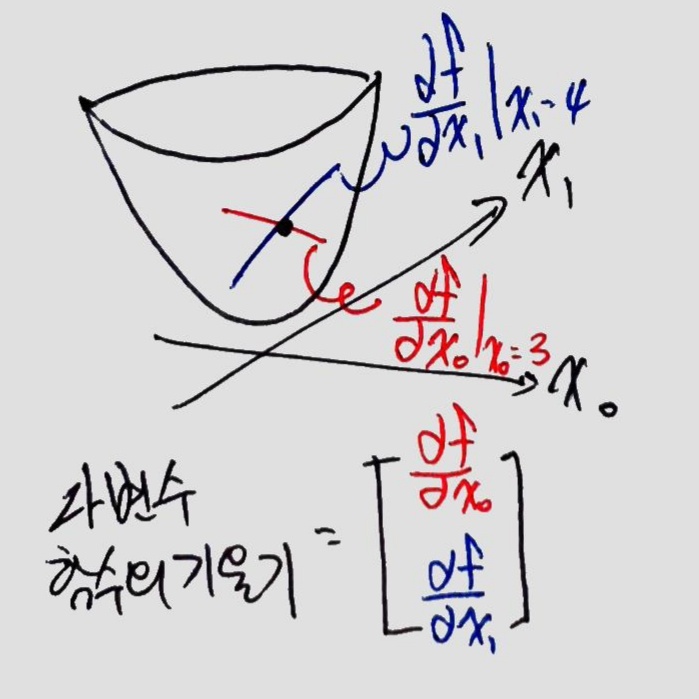 ∂f/∂x₁ | x₁=4
x₁
∂f/∂x₀ | x₀=3
x₀
다변수
함수의 기울기 = [ ∂f/∂x₀
∂f/∂x₁ ]